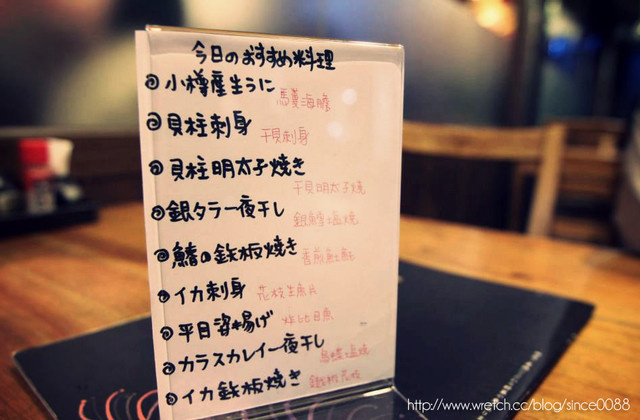 今日のおすすめ料理
小樽産生うに
馬糞海膽
貝柱刺身
干貝刺身
貝柱明太子焼き
干貝明太子燒
銀タラ一夜干し
銀鱈塩燒
鰆の鉄板焼き
イカ刺身
花枝生魚片
平目姿揚げ
炸比目魚
カラスカレイ一夜干し
烏鰈塩燒
イカ鉄板焼き
鉄板花枝
http://www.wretch.cc/blog/since0088